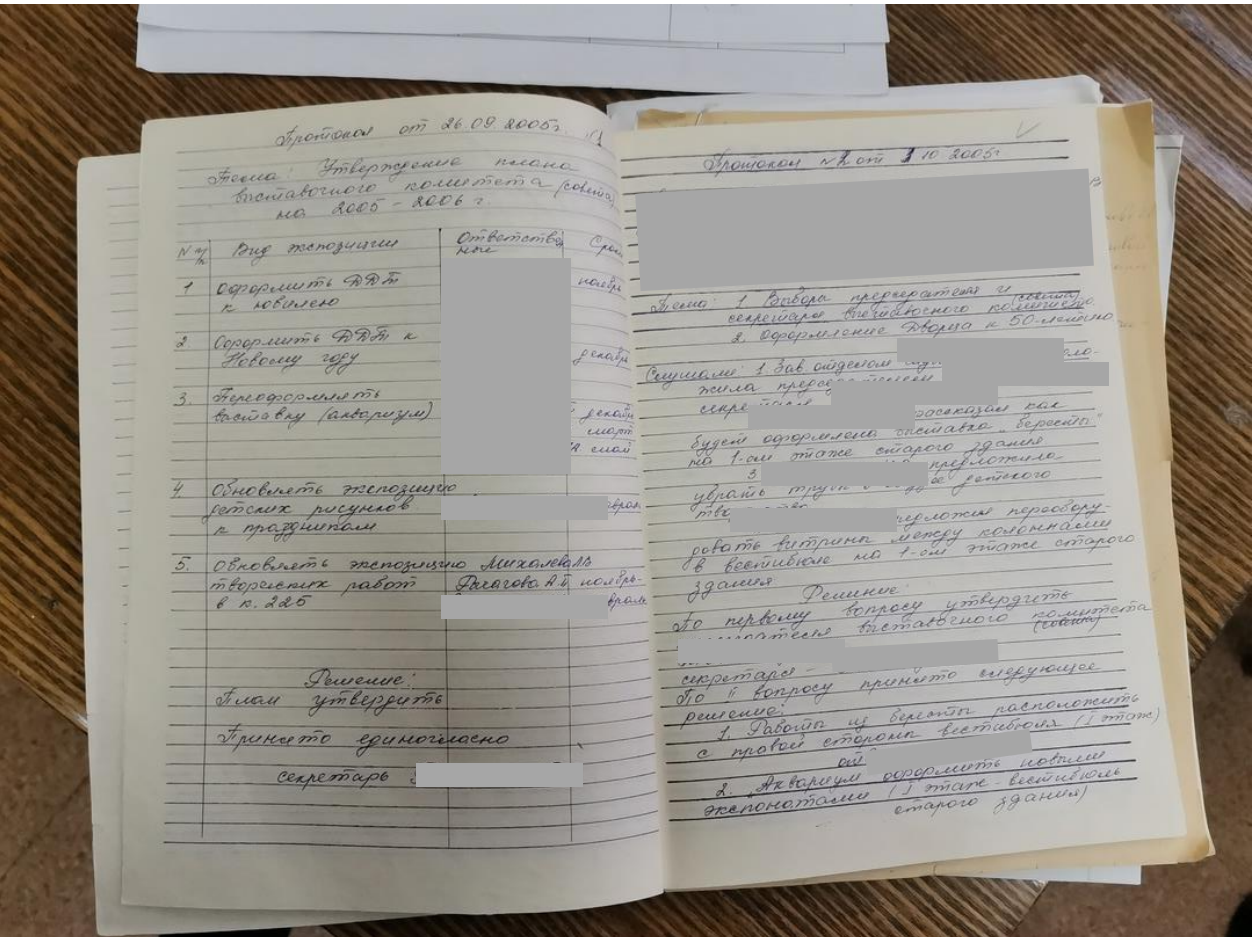 Протокол от 26.09.2005г. №1
Тема: Утверждение плана
выставочного комитета (совета)
на 2005-2006 г.
№ п/п Вид экспозиции Ответственные Сроки
1 Оформить ДДТ ноябрь
к юбилею
2 Оформить ДДТ к
Новому году декабрь
3. Переоформлять
выставку (аквариум) декабрь
март
май
4. Обновлять экспозицию
детских рисунков
к праздникам
5. Обновлять экспозицию Михалева
творческих работ ноябрь-
в к. 225
Решение:
План утвердить
Принято единогласно
секретарь
Протокол №2 от 10.2005г
Тема: 1 Выборы председателя и
секретаря выставочного комитета (совета)
2. Оформление Дворца к 50-летию
Слушали: 1 Зав отделом
жила председателем
рассказал как
будет оформлена выставка "бересты"
на 1-ом этаже старого здания
3 предложила
убрать детского
переобору-
довать витрины между колоннами
в вестибюле на 1-ом этаже старого
здания
Решение
По первому вопросу утвердить
выставочного комитета (совета)
секретаря -
По II вопросу принято следующее
решение:
1. Работы из бересты расположить
с правой стороны вестибюля (I этаж)
2. Аквариум оформить новыми
экспонатами (I этаж - вестибюль
старого здания)